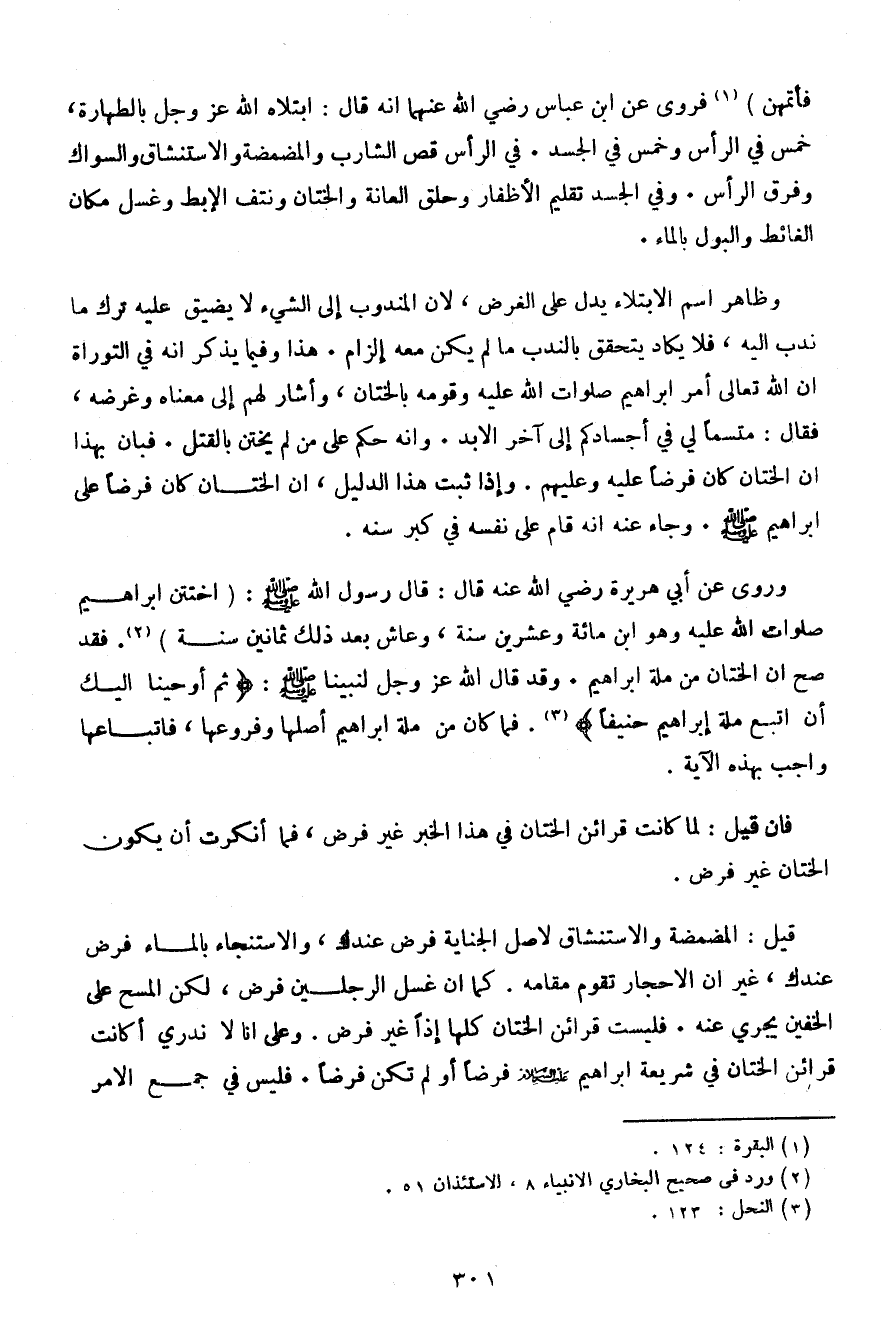 فأتمهن ) (١) فروى عن ابن عباس رضي الله عنهما انه قال : ابتلاه الله عز وجل بالطهارة،
خمس في الرأس وخمس في الجسد . في الرأس قص الشارب والمضمضة والاستنشاق والسواك
وفرق الرأس . وفي الجسد تقليم الأظفار وحلق العانة والختان ونتف الإبط وغسل مكان
الغائط والبول بالماء .
وظاهر اسم الابتلاء يدل على الفرض ، لان المندوب إلى الشيء لا يضيق عليه ترك ما
ندب اليه ، فلا يكاد يتحقق بالندب ما لم يكن معه إلزام . هذا وفيما يذكر انه في التوراة
ان الله تعالى أمر ابراهيم صلوات الله عليه وقومه بالختان ، وأشار لهم إلى معناه وغرضه ،
فقال : متسماً لي في أجسادكم إلى آخر الابد . وانه حكم على من لم يختن بالقتل . فبان بهذا
ان الختان كان فرضاً عليه وعليهم . وإذا ثبت هذا الدليل ، ان الختـــان كان فرضاً على
ابراهيم ﷺ . وجاء عنه انه قام على نفسه في كبر سنه .
وروى عن أبي هريرة رضي الله عنه قال : قال رسول الله ﷺ : ( اختتن ابراهـــيم
صلوات الله عليه وهو ابن مائة وعشرين سنة ، وعاش بعد ذلك ثمانين سنـــة ) (٢). فقد
صح ان الختان من ملة ابراهيم . وقد قال الله عز وجل لنبينا ﷺ : ﴿ ثم أوحينا اليـك
أن اتبع ملة إبراهيم حنيفاً ﴾ (٣) . فما كان من ملة ابراهيم أصلها وفروعها ، فاتبـــاعها
واجب بهذه الآية .
فان قيل : لما كانت قرائن الختان في هذا الخبر غير فرض ، فما أنكرت أن يكون
الختان غير فرض .
قيل : المضمضة والاستنشاق لاصل الجناية فرض عندك ، والاستنجاء بالمـــاء فرض
عندك ، غير ان الاحجار تقوم مقامه . كما ان غسل الرجلـــين فرض ، لكن المسح على
الخفين يجري عنه . فليست قرائن الختان كلها إذاً غير فرض . وعلى انا لا ندري أكانت
قرائن الختان في شريعة ابراهيم عليه السلام فرضاً أو لم تكن فرضاً . فليس في جمـــع الامر
(١) البقرة : ١٢٤ .
(٢) ورد في صحيح البخاري الانبياء ٨ ، الاستئذان ٥١ .
(٣) النحل : ١٢٣ .
٣٠١